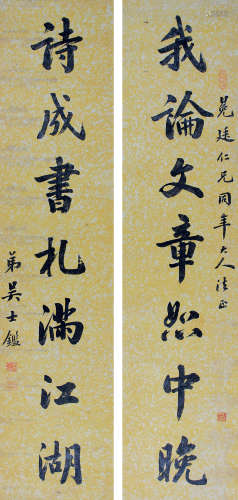 我論文章恕中晚
晃廷仁兄同年大人法正
詩成書札滿江湖
弟吳士鑑